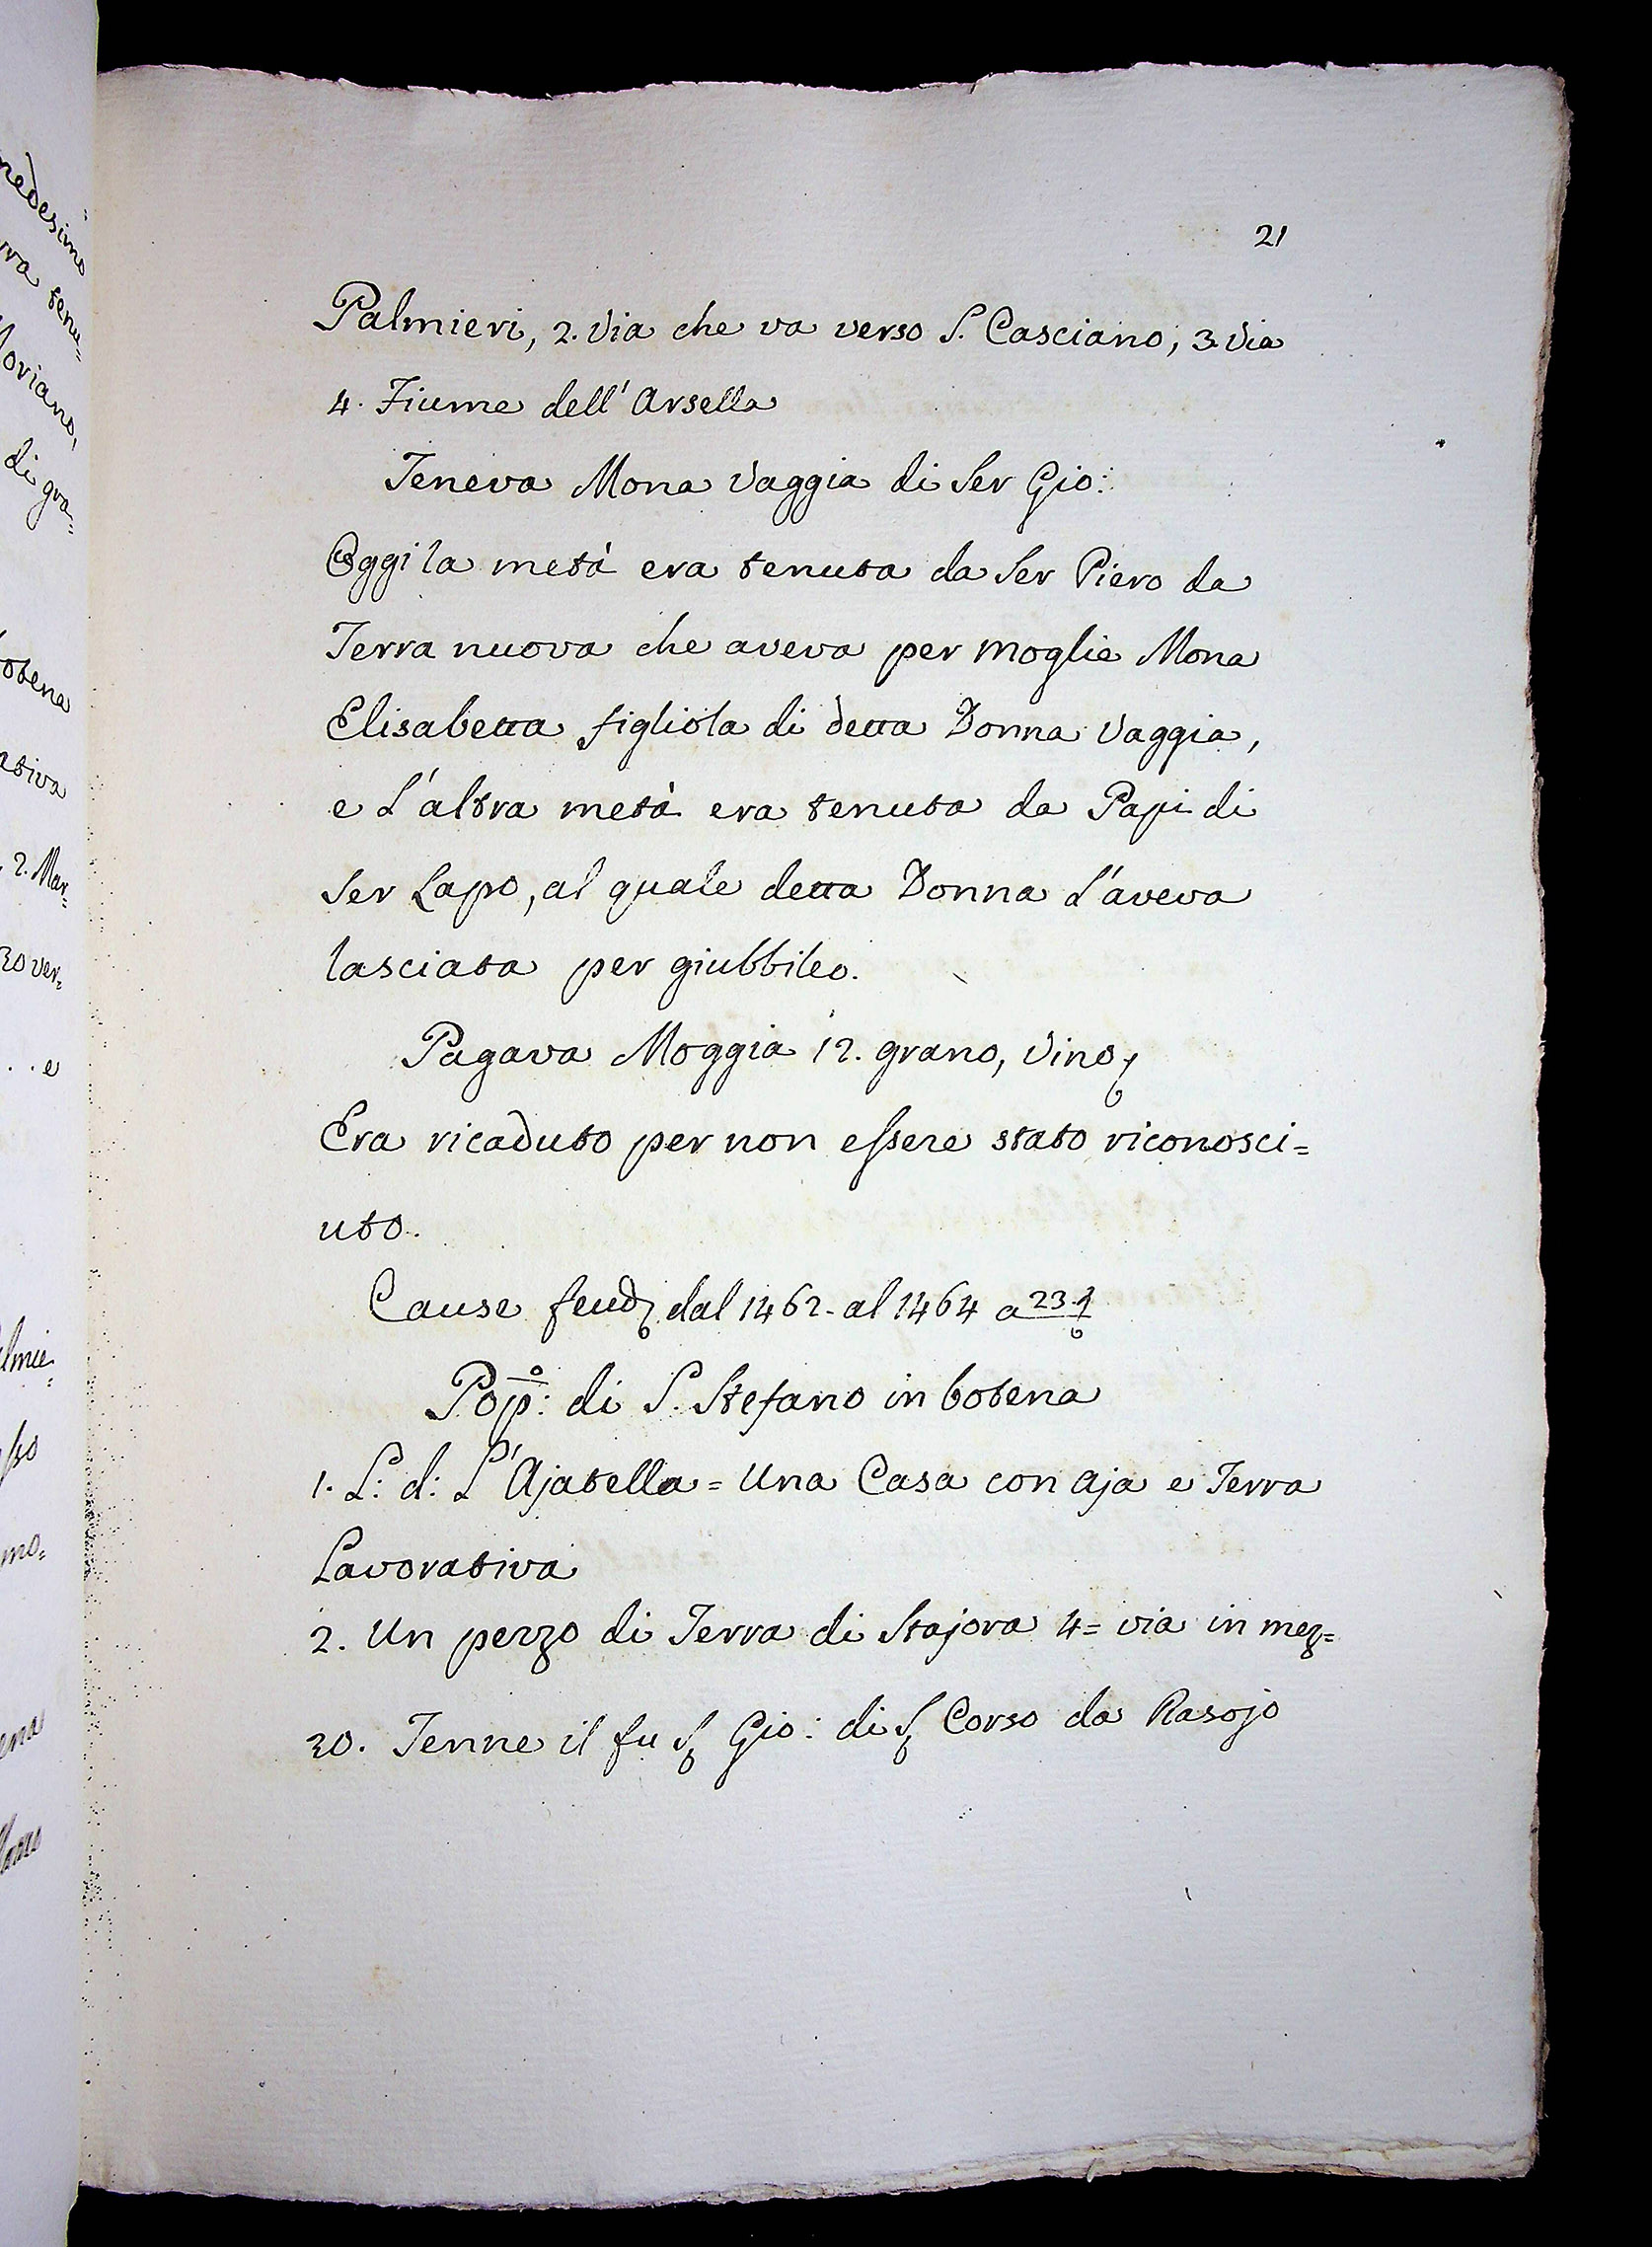 21
Palmieri, 2. Via che va verso S. Casciano, 3. Via
4. Fiume dell'Arsella
Teneva Mona Vaggia di Ser Gio:
Oggi la metà era tenuta da Ser Piero da
Terra nuova che aveva per moglie Mona
Elisabetta figliola di detta Donna Vaggia,
e L'altra metà era tenuta da Papi di
Ser Lapo, al quale detta Donna L'aveva
lasciata per giubbileo.
Pagava Moggia 12. grano, Vino
Era ricaduto per non essere stato riconosci=
uto.
Cause feud dal 1462. al 1464 a 23.
Popº: di S. Stefano in botena
1. L: d: L'Ajatella = Una Casa con aja e Terra
Lavorativa
2. Un pezzo di Terra di Stajora 4= via in mez=
zo. Tenne il fu S Gio: di S Corso da Rasojo
medesimo
tenu=
di gra=
2. Mar=